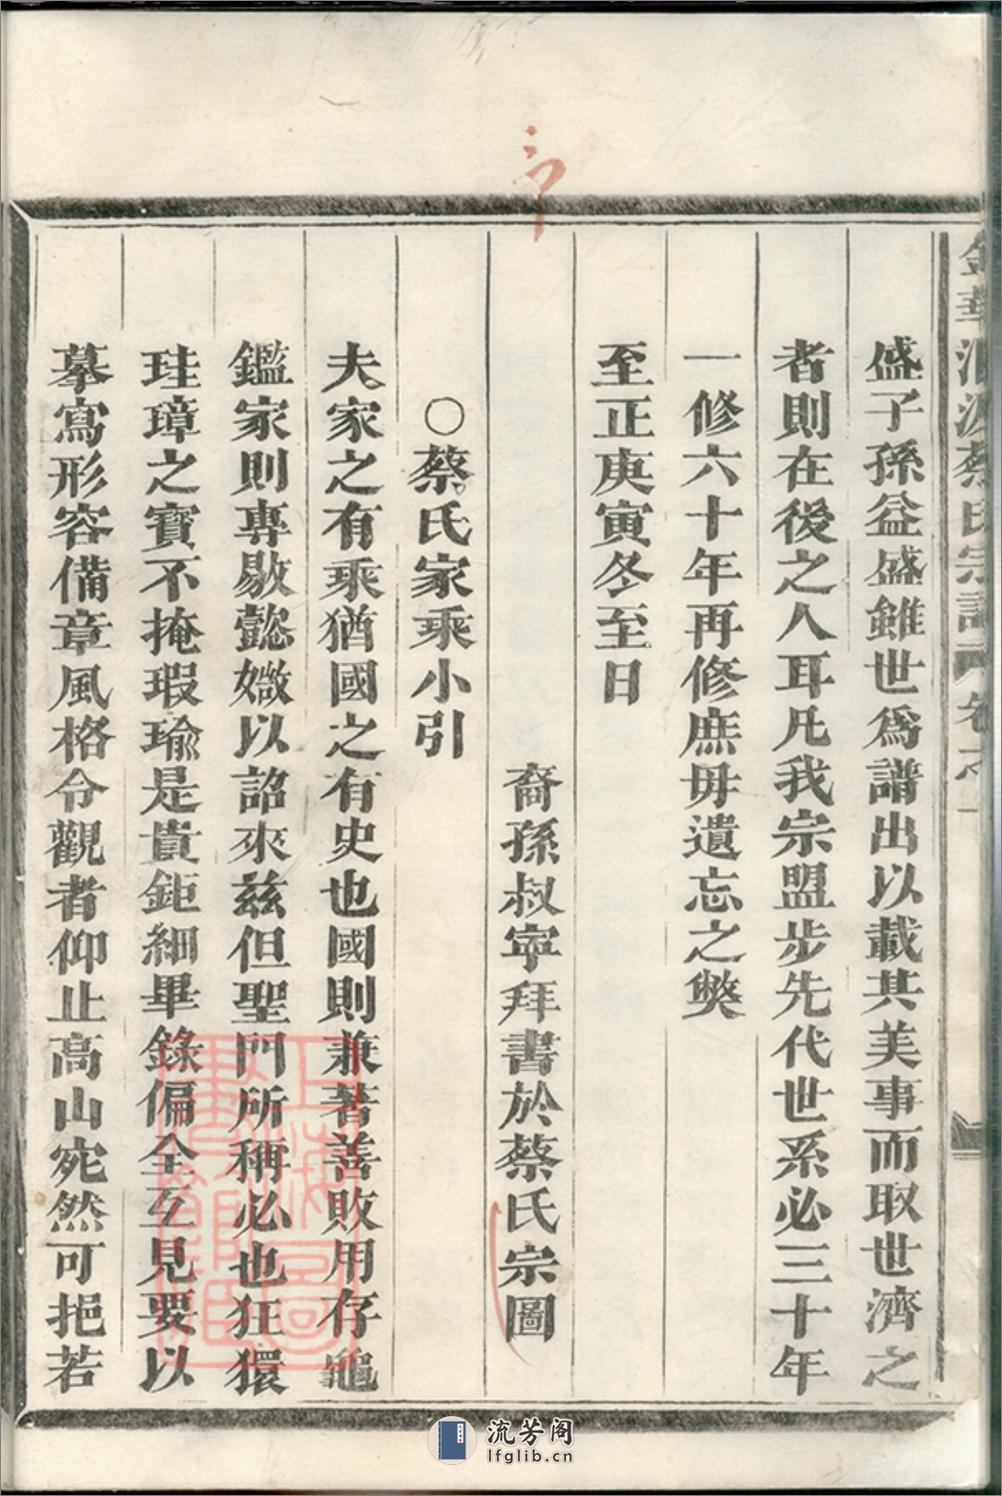 盛子孫益盛雖世爲譜出以載其美事而取世濟之
者則在後之人耳凡我宗盟步先代世系必三十年
一修六十年再修庶毋遺忘之獘
至正庚寅冬至日
裔孫叔寧拜書於蔡氏宗圖
○蔡氏家乘小引
夫家之有乘猶國之有史也國則兼著善敗用存龜
鑑家則專歇懿媺以詔來兹但聖門所稱必也狂獧
珪璋之寳不掩瑕瑜是貴鉅細畢錄偏全互見要以
摹寫形容備章風格令觀者仰止高山宛然可挹若
上海圖書館藏
流芳阁
lfglib.cn